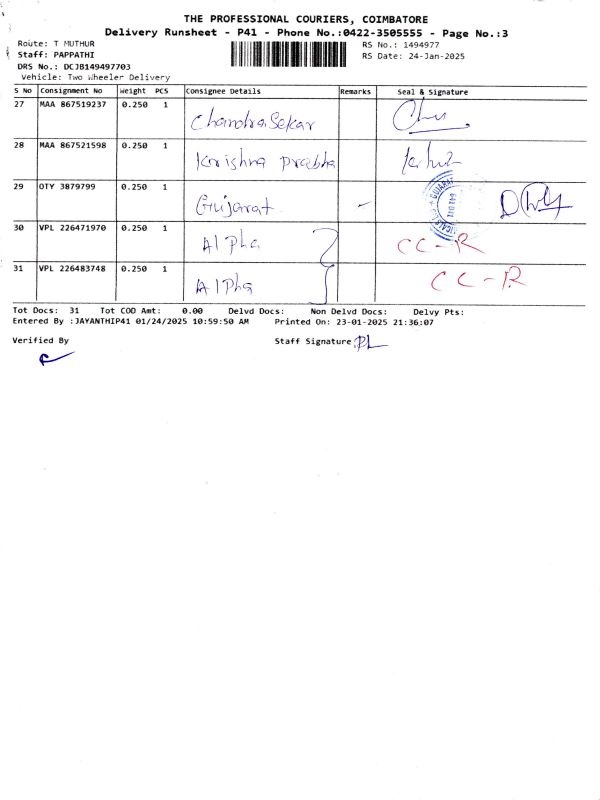 THE PROFESSIONAL COURIERS, COIMBATORE
Delivery Runsheet - P41 - Phone No.:0422-3505555 - Page No.:3
Route: T MUTHUR RS No.: 1494977
Staff: PAPPATHI RS Date: 24-Jan-2025
DRS No.: DCJB149497703
Vehicle: Two Wheeler Delivery
S No Consignment No Weight PCS Consignee Details Remarks Seal & Signature
27 MAA 867519237 0.250 1 ChandraSekar
28 MAA 867521598 0.250 1 Krishna Prabha
29 OTY 3879799 0.250 1 Gujarat -
30 VPL 226471970 0.250 1 Alpha CC-R
31 VPL 226483748 0.250 1 Alpha CC-R
Tot Docs: 31 Tot COD Amt: 0.00 Delvd Docs: Non Delvd Docs: Delvy Pts:
Entered By :JAYANTHIP41 01/24/2025 10:59:50 AM Printed On: 23-01-2025 21:36:07
Verified By Staff Signature